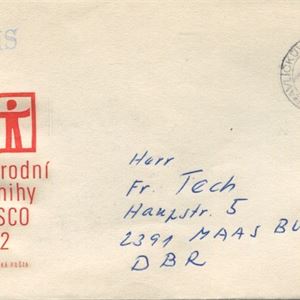 IS
rodní
nihy
SCO
2
KÁ POŠTA
AVLÍČKŮV
Herr
Fr. Tech
Hauptstr. 5
2391 MAAS BU
DBR